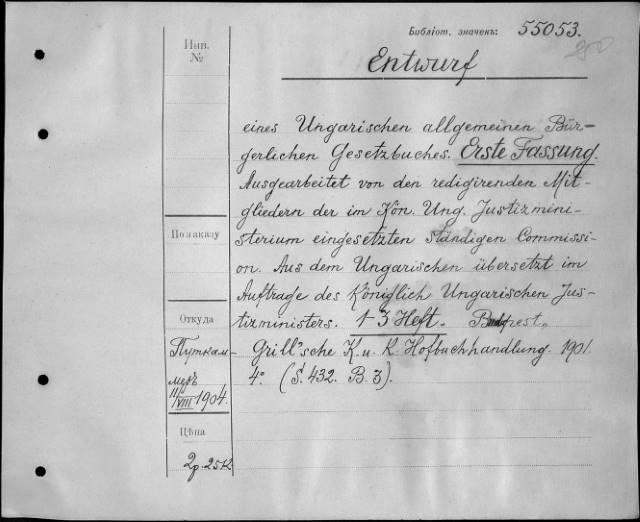 Библіот. значекъ: 55053.
250
Инв.
№
Entwurf
eines Ungarischen allgemeinen Bür-
gerlichen Gesetzbuches. Erste Fassung.
Ausgearbeitet von den redigirenden Mit-
gliedern der im Kön. Ung. Justizmini-
sterium eingesetzten ständigen Commissi-
on. Aus dem Ungarischen übersetzt im
Auftrage des Königlich Ungarischen Jus-
tizministers. 1-3 Heft. Budpest.
Grill'sche K. u. K. Hofbuchhandlung. 1901.
4°. (S. 432. B. 3).
По заказу
Откуда
Путкам-
меръ
11/VIII 1904.
Цѣна
2р. 25к